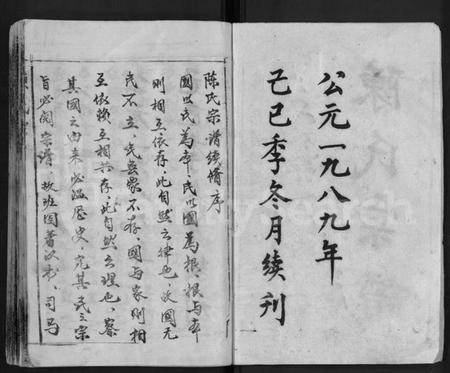 公元一九八九年
己巳季冬月续刊
陈氏宗谱续修序
國以民為本民以國為根、根与本
则相互依存，此自然之律也，故國无
民不立，民無家不存，國与家则相
互依赖互相共存，此自然之理也，察
其國之由来必温歷史，究其氏之宗
旨必阅宗谱，故班固著汉书，司马